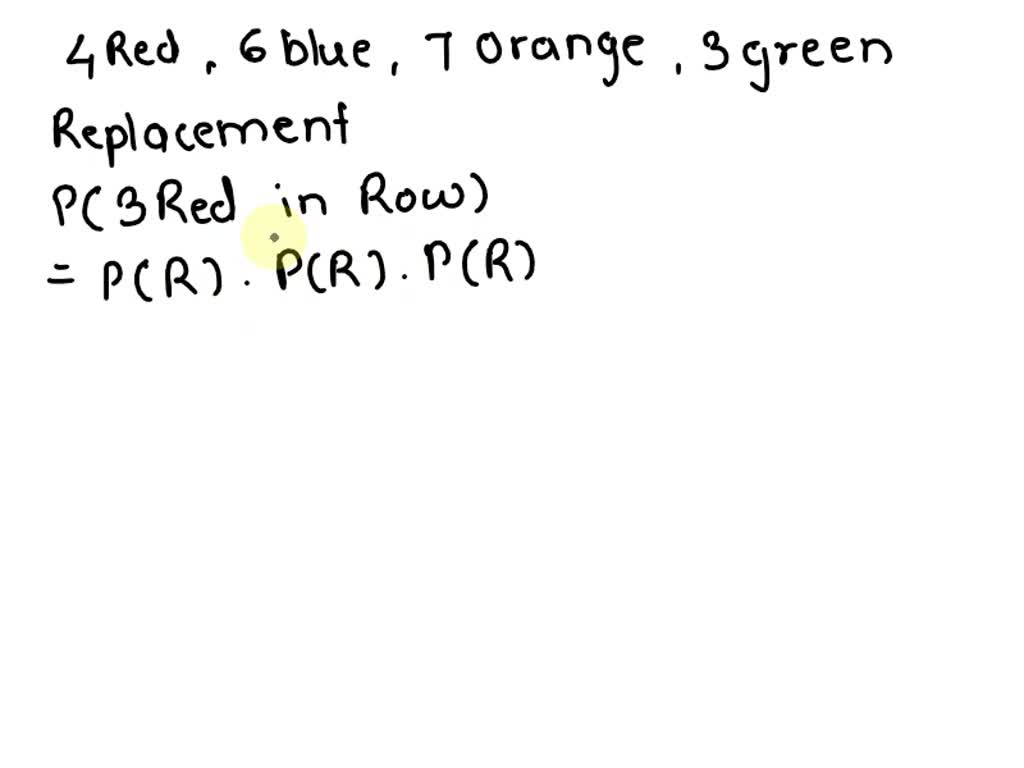 4 Red, 6 blue, 7 orange, 3 green
Replacement
P(3 Red in Row)
= P(R) . P(R) . P(R)